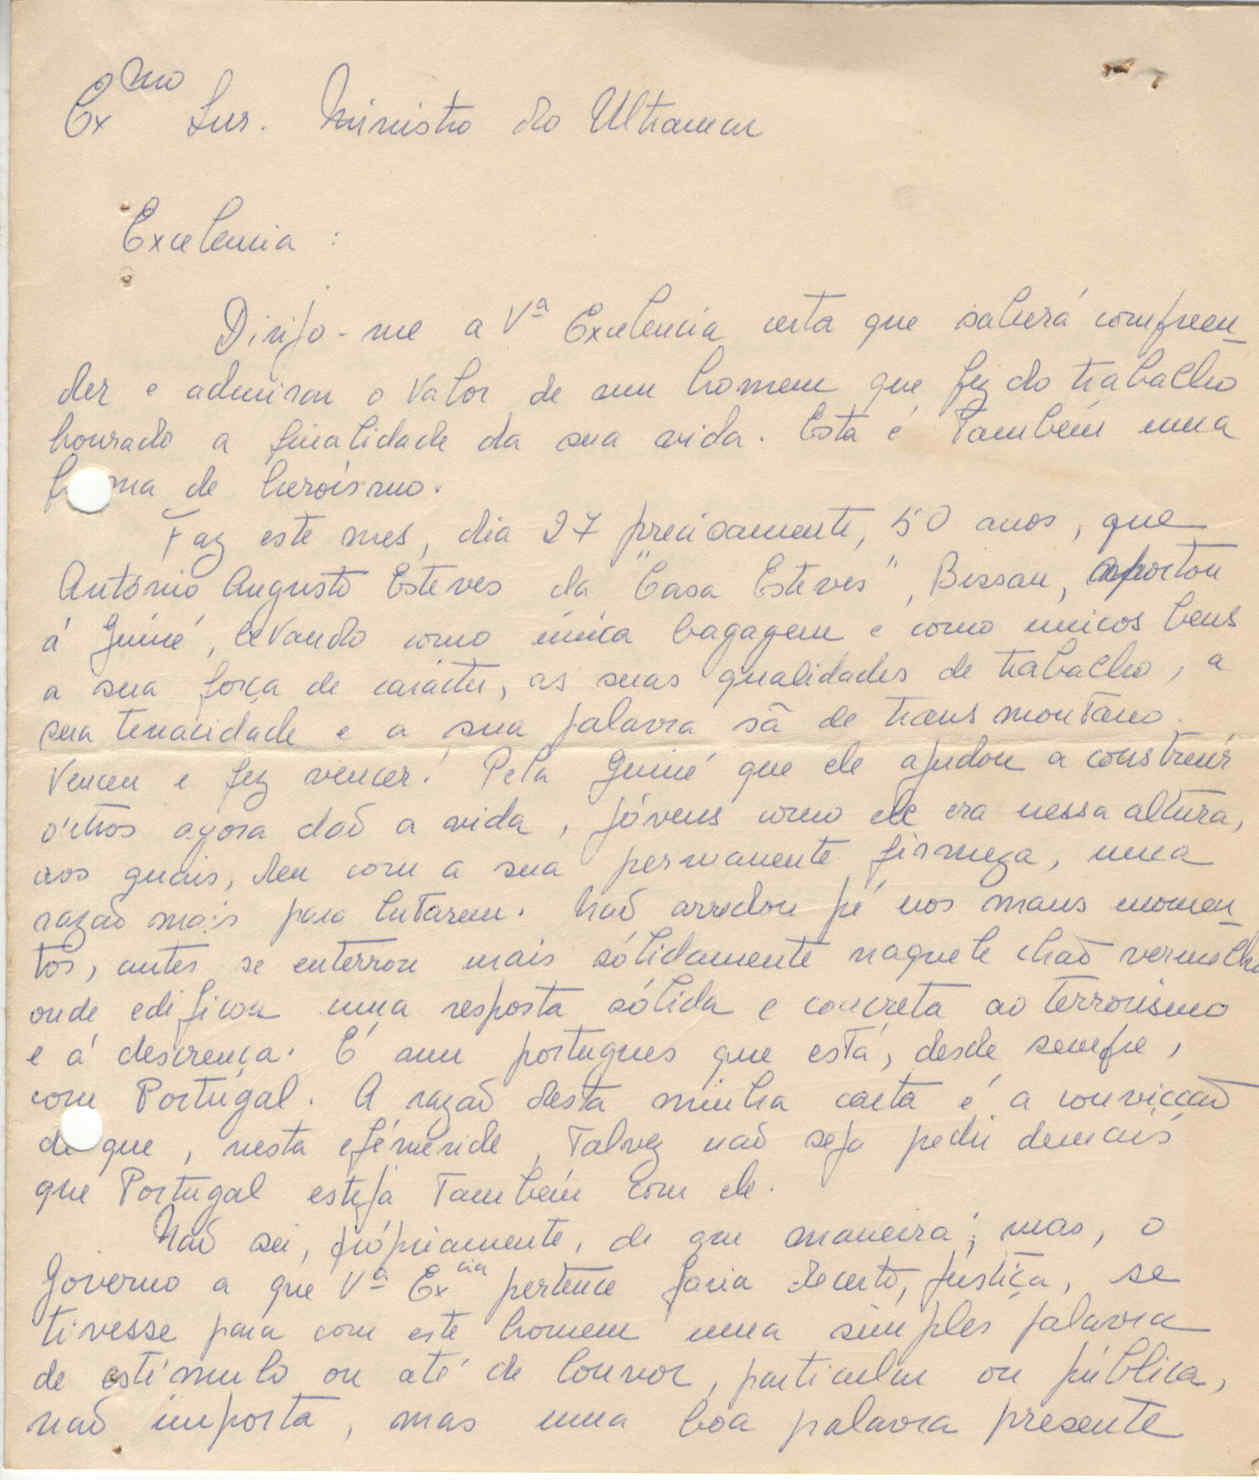 Exmo Snr. Ministro do Ultramar
Excelencia :
Dirijo-me a Vª Excelencia certa que saberá compreen-
der e admirar o valor de um homem que fez do trabalho
honrado a finalidade da sua vida. Esta é também uma
ma de heroísmo.
Faz este mes, dia 27 precisamente, 50 anos, que
António Augusto Esteves da "Casa Esteves", Bissau, aportou
á Guiné, levando como única bagagem e como unicos bens
a sua força de carácter, as suas qualidades de trabalho, a
sua tenacidade e a sua palavra sã de transmontano.
Venceu e fez vencer! Pela Guiné que ele ajudou a construir
outros agora daõ a vida, jóvens como ele era nessa altura,
aos quais, deu com a sua permanente firmeza, uma
razaõ mais para lutarem. Naõ arredou pé nos maus momen-
tos, antes se enterrou mais sólidamente naquele chaõ vermelho
onde edificou uma resposta sólida e concreta ao terrorismo
e á descrença. É um portugues que está, desde sempre,
com Portugal. A razaõ desta minha carta é a convicçaõ
de que, nesta efémeride, talvez naõ seja pedir demais
que Portugal esteja também com ele.
Naõ sei, própriamente, de que maneira; mas, o
Governo a que Vª Excia pertence faria decerto, justiça, se
tivesse para com este homem uma simples palavra
de estímulo ou até de louvor, particular ou pública,
naõ importa, mas uma boa palavra presente